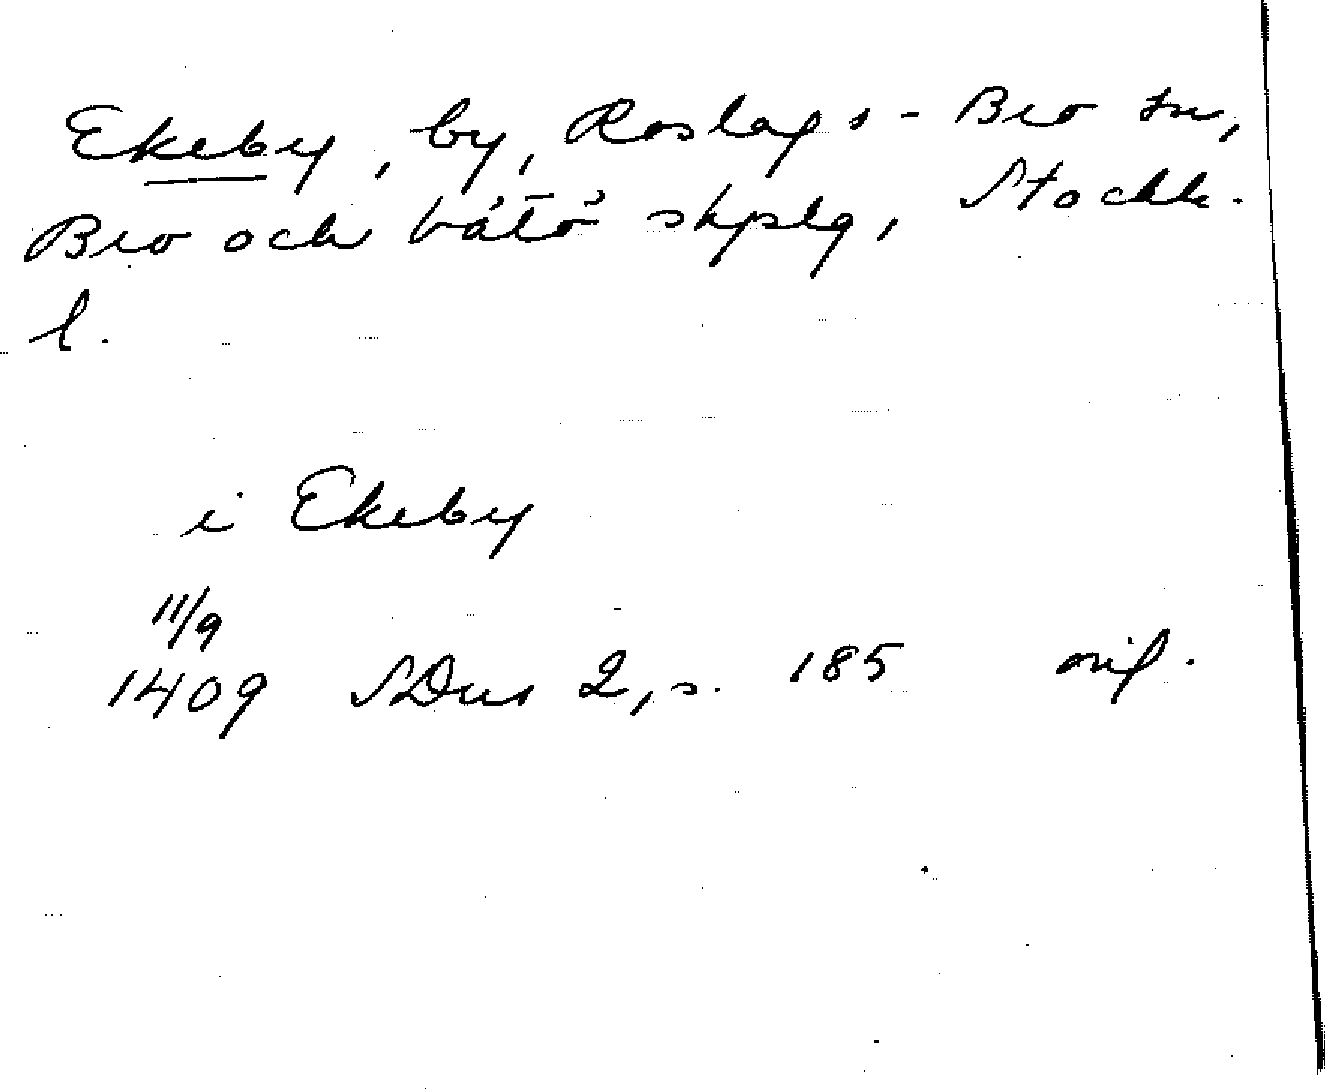 Ekeby, by, Roslags-Bro sn,
Bro och Vätö skplg, Stockh.
l.
i Ekeby
11/9
1409 SDns 2, s. 185 orig.